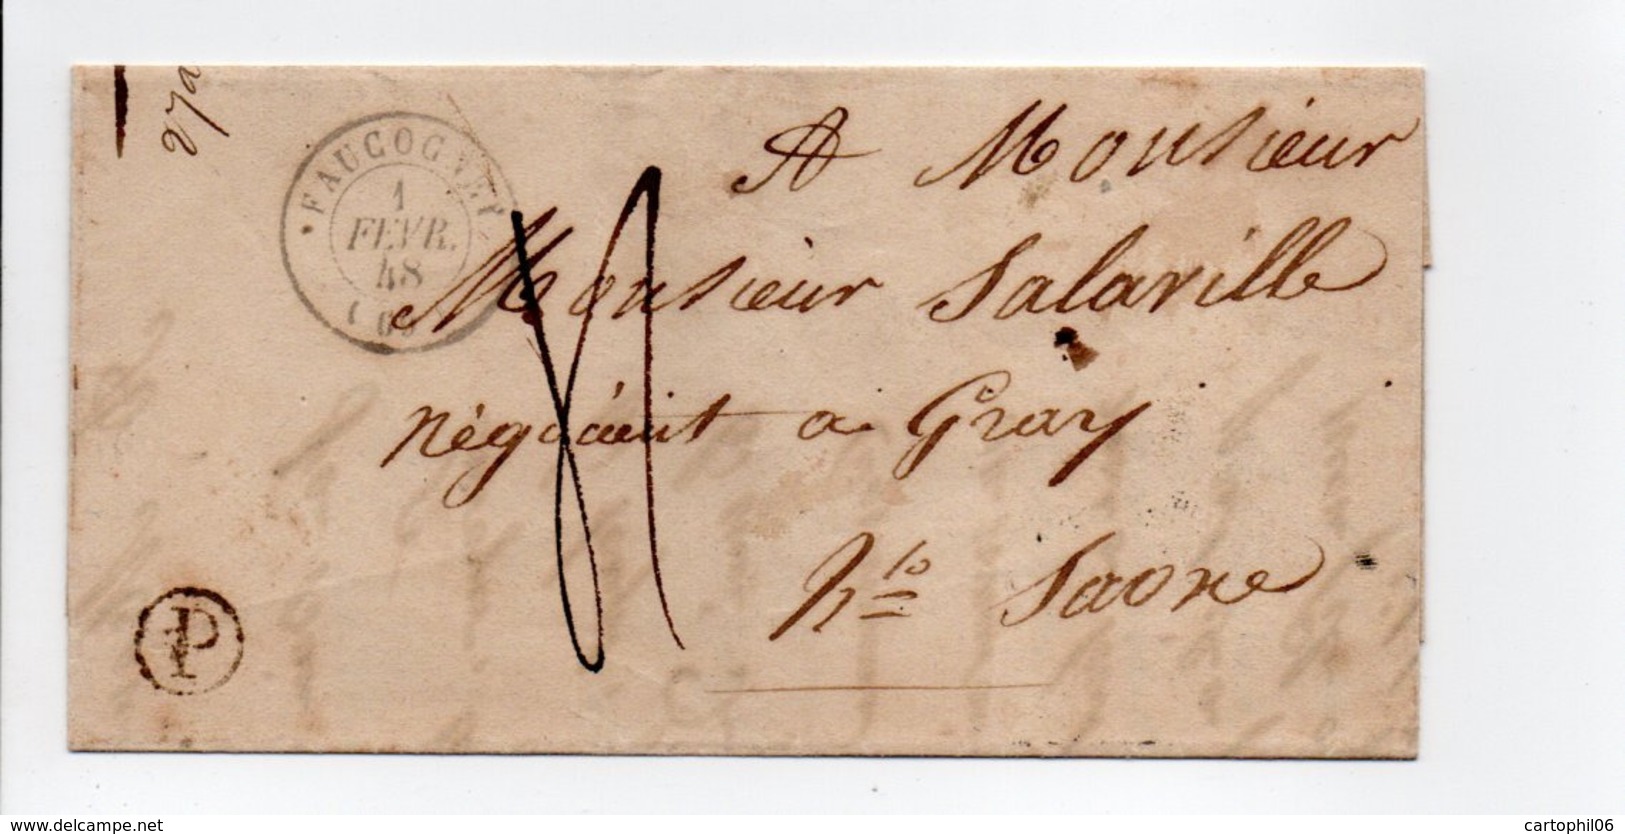 27
FAUCOGNEY
1
FEVR.
48
A Monsieur
Monsieur Salaville
négociant a Gray
hte Saone
P
www.delcampe.net
cartophil06